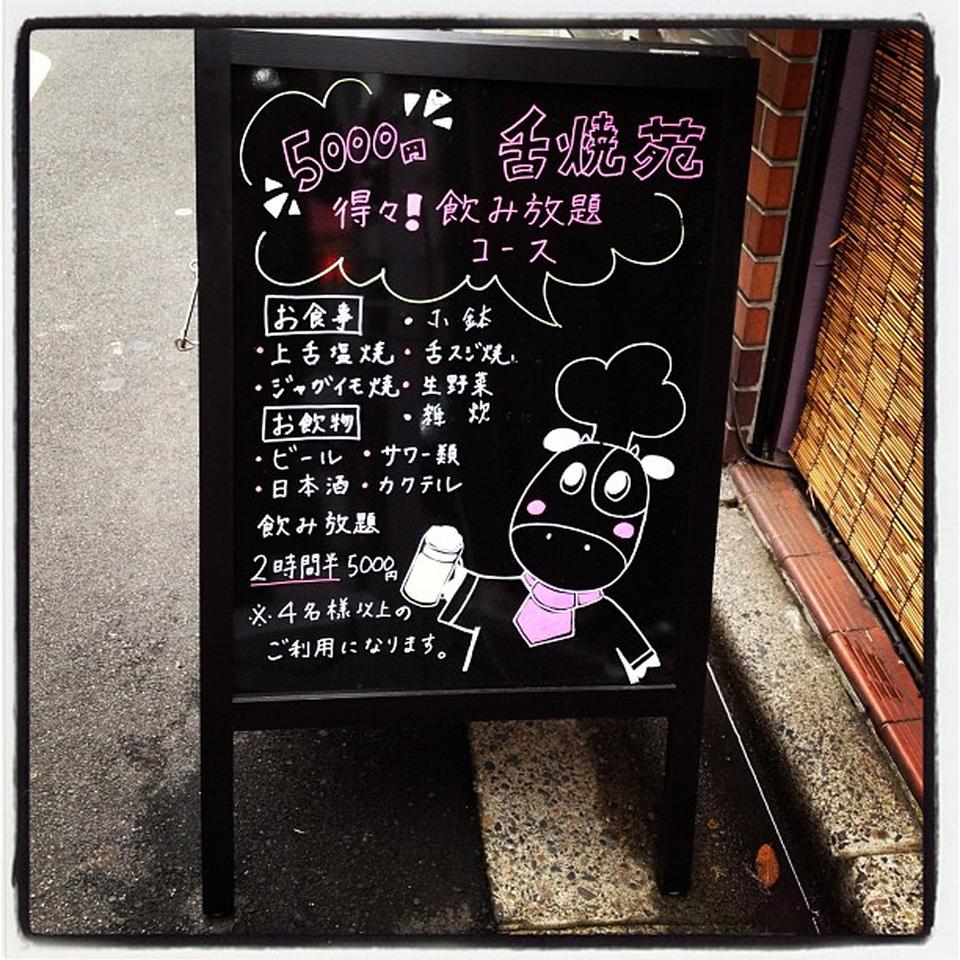 5000円 舌焼苑
得々!飲み放題
コース
お食事 ・小鉢
・上舌塩焼 ・舌スジ焼
・ジャガイモ焼 ・生野菜
お飲物 ・雑炊
・ビール ・サワー類
・日本酒 ・カクテル
飲み放題
2時間半 5000円
※.4名様以上の
ご利用になります。